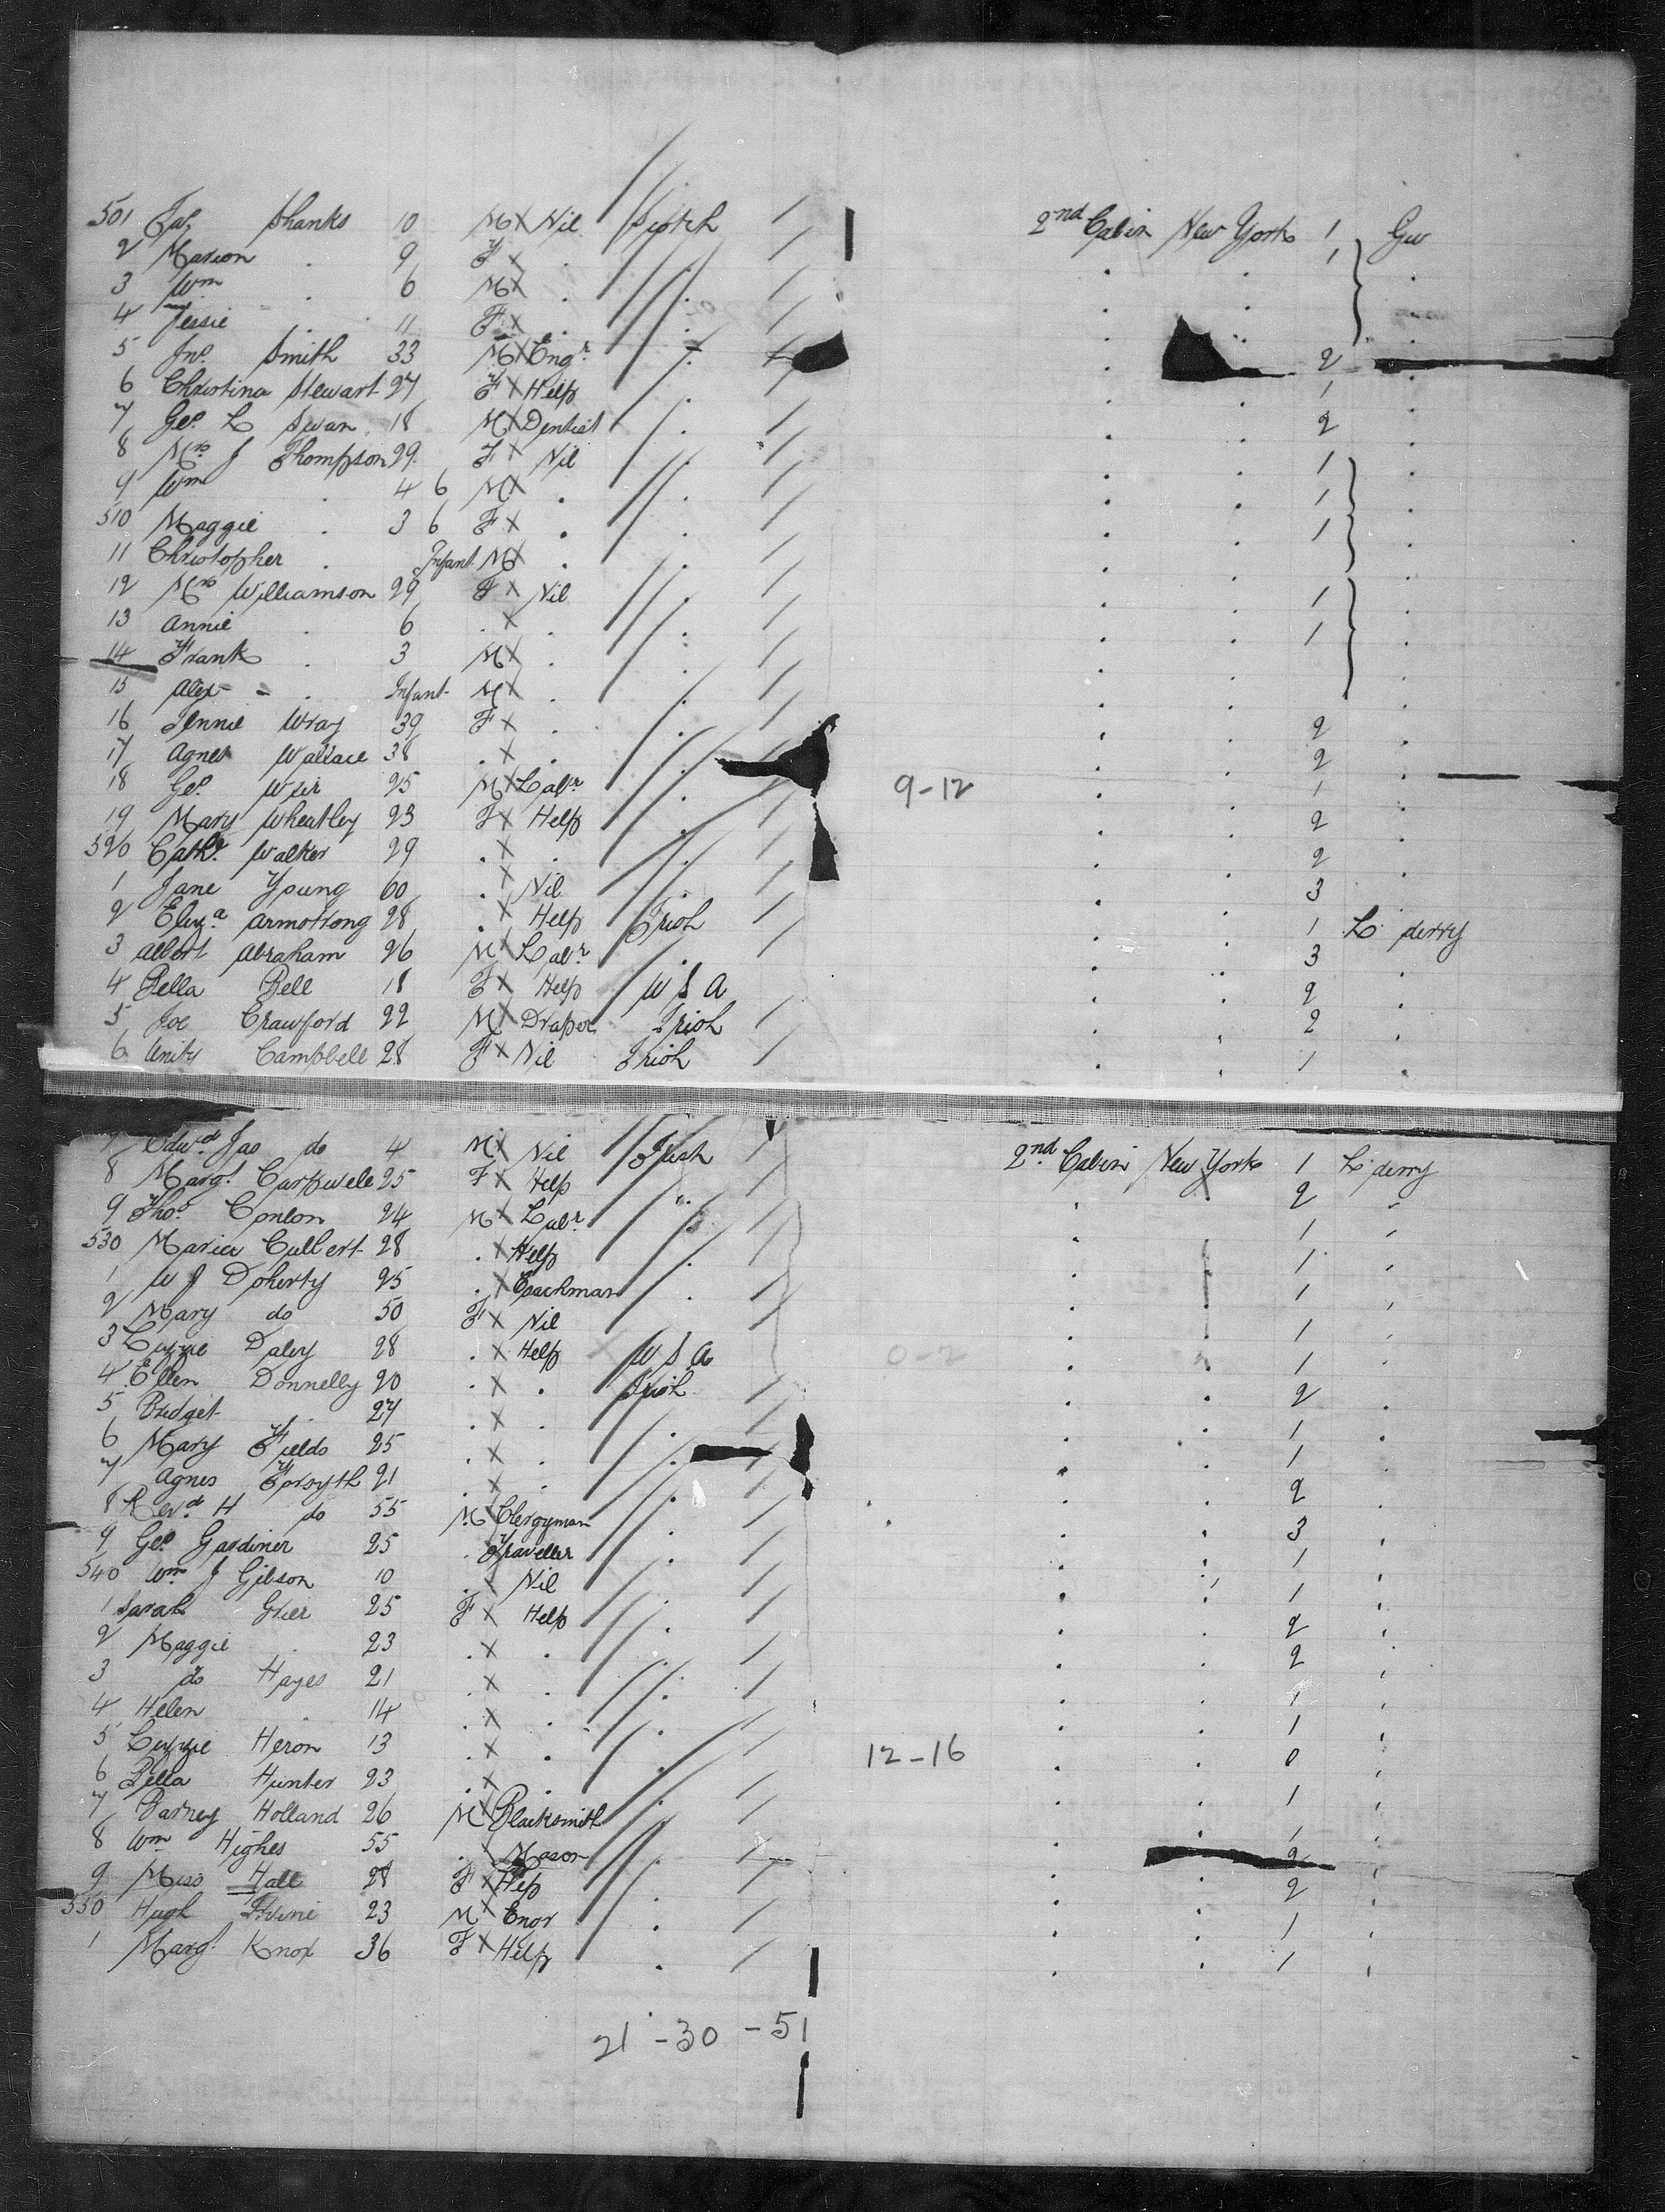 501 Jas Shanks 10 M X Nil Scotch / 2nd Cabin New York 1 Gw
2 Marion . 9 F X . . / . . 1 .
3 Wm . 6 M X . . / . . .
4 Jessie . 11 F X . . / . . .
5 Jno. Smith 33 M X Engr . / . 2 .
6 Christina Stewart 27 F X Help . / . . 1 .
7 Geo. L Swan 18 M X Dentist . / . . 2 .
8 Mrs J Thompson 29 F X Nil . / . . 1 .
9 Wm . 4 6 M X . . / . . 1 .
510 Maggie . 3 6 F X . . / . . 1 .
11 Christopher . Infant M X . . / . . .
12 Mrs Williamson 29 F X Nil . / . . 1 .
13 Annie . 6 . X . . / . . 1 .
14 Frank . 3 M X . . / . . .
15 Alex . Infant M X . . / . . .
16 Jennie Wray 39 F X . . / . . 2 .
17 Agnes Wallace 38 . X . . . . 2 .
18 Geo. Weir 25 M X Labr . / . . 1 .
19 Mary Wheatley 23 F X Help . / . . 2 .
520 Cathe. Walker 29 . X . . / . . 2 .
1 Jane Young 60 . X Nil . / . . 3 .
2 Eliza Armstrong 28 . X Help Irish / . . 1 L derry
3 Albert Abraham 26 M X Labr . / . . 3 .
4 Bella Bell 18 F X Help U S A . . 2 .
5 Joe Crawford 22 M X Draper Irish / . . 2 .
6 Unity Campbell 28 F X Nil Irish / . . 1 .
7 Edwd Jas do 4 M X Nil Irish 2nd Cabin New York 1 L derry
8 Margt Carswell 25 F X Help . / . 2 .
9 Thos. Conlon 24 M X Labr . / . 1 .
530 Maria Culbert 28 . X Help . / . 1 .
1 W J Doherty 25 . X Coachman . / . 1 .
2 Mary do 50 F X Nil . / . 1 .
3 Lizzie Daley 28 . X Help U S A . 1 .
4 Ellen Donnelly 20 . X . Irish / . . 2 .
5 Bridget . 27 . X . . / . . 1 .
6 Mary Fields 25 . X . . . . 1 .
7 Agnes Forsyth 21 . X . . / . . 2 .
8 Revd H do 55 M X Clergyman . / . . 3 .
9 Geo. Gardiner 25 . Traveller . / . . 1 .
540 Wm J Gibson 10 . X Nil . / . . 1 .
1 Sarah Grier 25 F X Help . / . . 2 .
2 Maggie . 23 . X . . / . . 2 .
3 do Hayes 21 . X . . / . . 1 .
4 Helen . 14 . X . . / . . 1 .
5 Lizzie Heron 13 . X . . / . . 0 .
6 Bella Hunter 23 . X . . / . . 1 .
7 Barney Holland 26 M X Blacksmith . / . . 1 .
8 Wm Highes 55 . X Mason . / . 2 .
9 Miss Hall 28 F X Help . / . . 2 .
550 Hugh Irvine 23 M X Engr . / . . 1 .
1 Margt Knox 36 F X Help . / . . 1 .
9-12
0-2
12-16
21 - 30 - 51